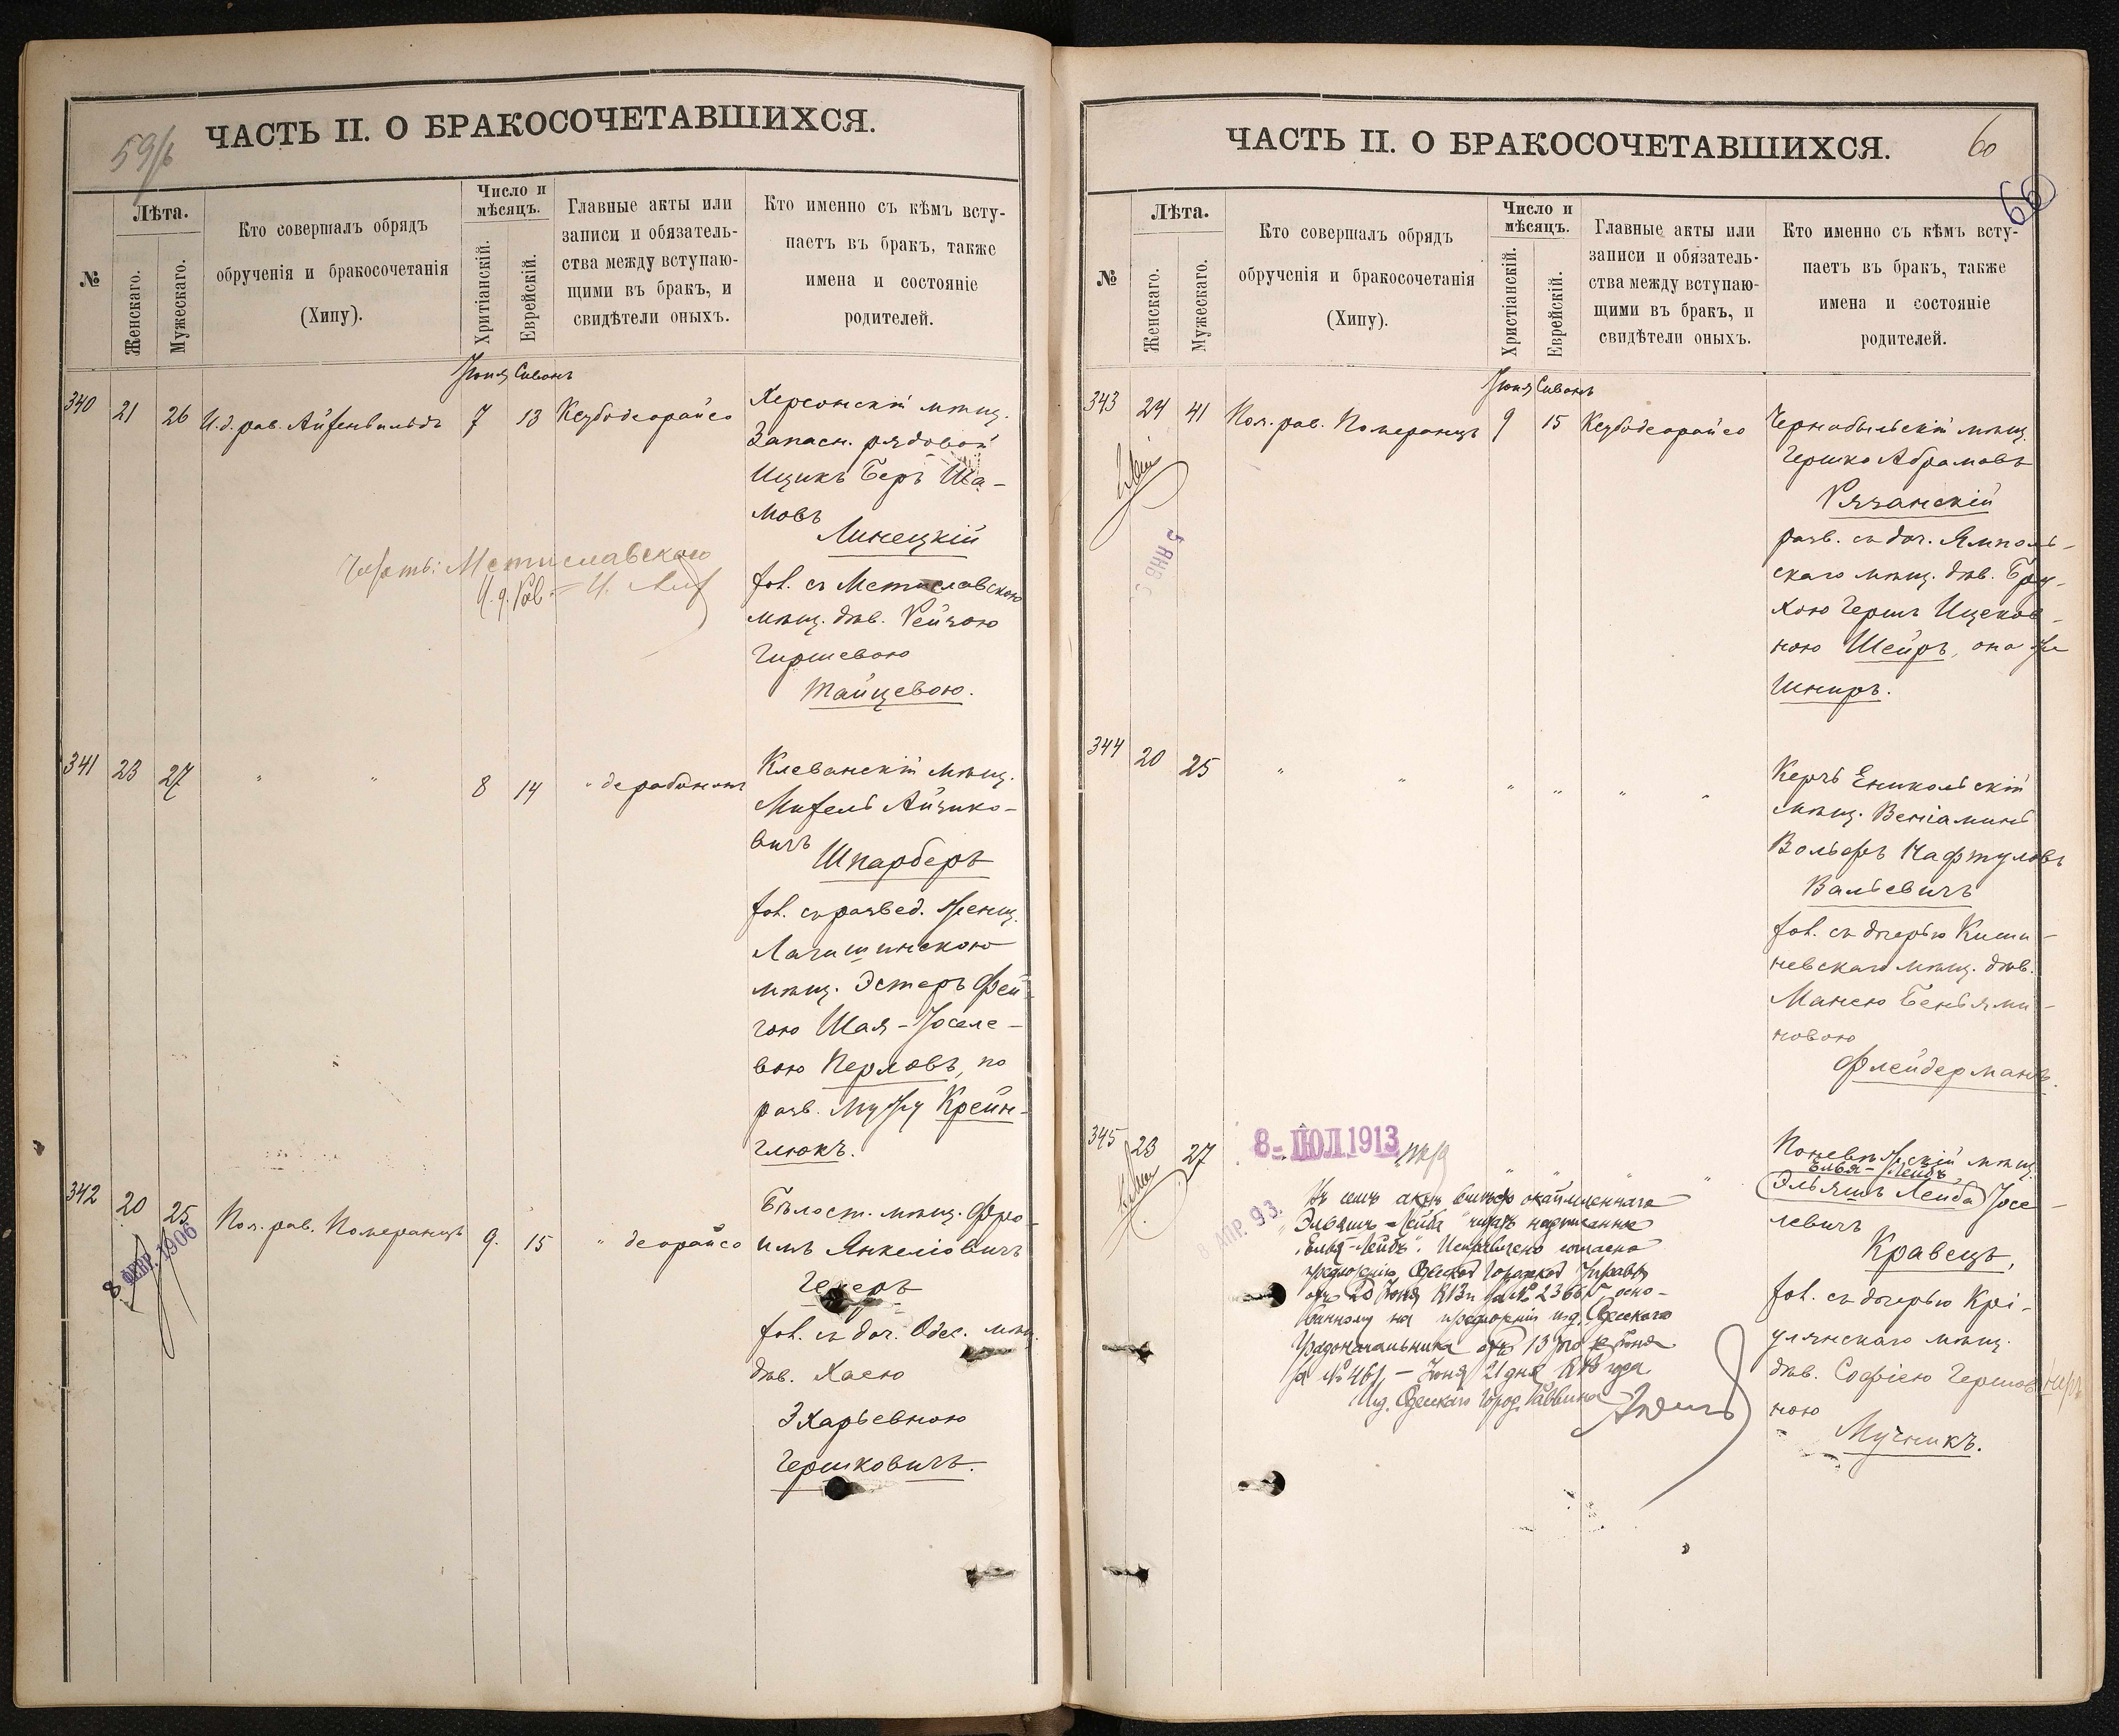 59/б
ЧАСТЬ II. О БРАКОСОЧЕТАВШИХСЯ.
№
Лѣта.
Женскаго.
Мужескаго.
Кто совершалъ обрядъ
обрученія и бракосочетанія
(Хипу).
Число и
мѣсяцъ.
Хритіанскій.
Еврейскій.
Главные акты или
записи и обязатель-
ства между вступаю-
щими въ бракъ, и
свидѣтели оныхъ.
Кто именно съ кѣмъ всту-
паетъ въ бракъ, также
имена и состояніе
родителей.
Іюня Сивонъ
340 21 26 И.д. рав. Айзенвильдъ 7 13 Ксубодеорайсо
Херсонскій мѣщ.
Запасн. рядовой
Ицикъ Беръ Ша-
мовъ
Линецкій
хол. съ Мстиславскою
мѣщ. дѣв. Рейзою
Гиршевою
Тайцевою.
Мстиславского
И. д. Рав.
341 23 27 " " 8 14 " дерабононъ
Клеванскій мѣщ.
Михель Айзико-
вичъ
Шпарберъ
хол. съ развед. женщ.
Логишинскою
мѣщ. Эстеръ Фей-
гою Шая-Іоселе-
вою Перловъ, по
разв. мужу Крейн-
глюкъ.
342 20 25 Пом. рав. Померанцъ 9. 15 " деорайсо
8 ФЕВР. 1906
Бѣлост. мѣщ. Фро-
имъ Янкеліовичъ
Гехеръ
хол. съ доч. Одес. мѣщ.
дѣв. Хаею
Зхарьевною
Гершковичъ.
ЧАСТЬ II. О БРАКОСОЧЕТАВШИХСЯ.
60
66
№
Лѣта.
Женскаго.
Мужескаго.
Кто совершалъ обрядъ
обрученія и бракосочетанія
(Хипу).
Число и
мѣсяцъ.
Христіанскій.
Еврейскій.
Главные акты или
записи и обязатель-
ства между вступаю-
щими въ бракъ, и
свидѣтели оныхъ.
Кто именно съ кѣмъ всту-
паетъ въ бракъ, также
имена и состояніе
родителей.
Іюня Сивонъ
343 24 41 Пом. рав. Померанцъ 9 15 Ксубодеорайсо
5 ЯНВ
Чернобыльскій мѣщ.
Гершко Абрамовъ
Рязанскій
разв. съ доч. Ямполь-
скаго мѣщ. дѣв. Бру-
хою Гершъ Ицеков-
ною Шейръ, она же
Шниръ.
344 20 25 " " " " " "
Керчь Еникольскій
мѣщ. Веніаминъ
Вольфъ Нафтуловъ
Вальевичъ
хол. съ дочерью Киши-
невскаго мѣщ. дѣв.
Манею Беньями-
новою
Флейдерманъ.
345 23 27
8 - ІЮЛ 1913
АПР. 93.
Поневѣжскій мѣщ.
Элья-Лейбъ
Эльяшъ Лейба Іосе-
левичъ
Кравецъ,
хол. съ дочерью Крі-
улянскаго мѣщ.
дѣв. Софіею Гершов-
ною
Мучникъ.
Въ семъ актѣ вмѣсто окаймленнаго
"Эльяшъ-Лейба" читать надписанные
"Элья-Лейбъ". Исправлено согласно
предложенію Одесской Городской Управы
отъ 20 Іюня 1913 г. за № 2366 осно-
ванному на предложеніи Одесскаго
Градоначальника отъ 13 того же Іюня
за № 461, - Іюня 21 дня 1913 года
И.д. Одесскаго Город. Раввина